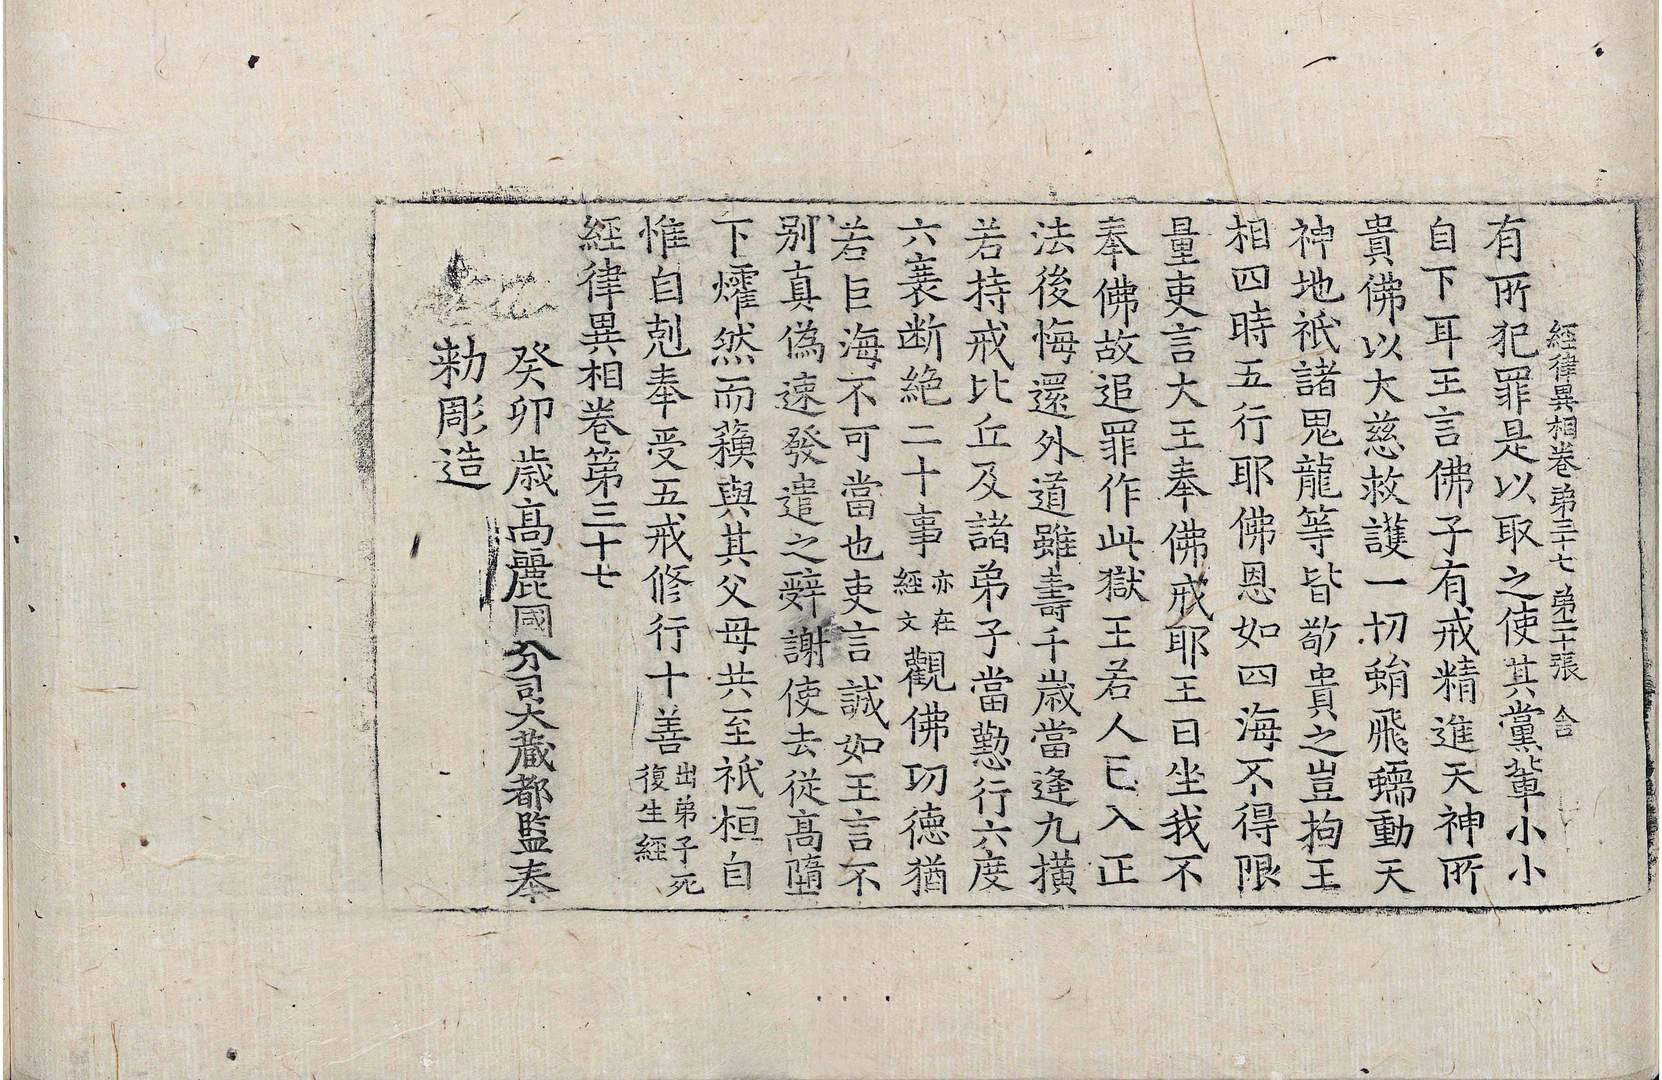 經律異相卷第三十七 第二十張 舍
有所犯罪是以取之使其黨輩小小
自下耳王言佛子有戒精進天神所
貴佛以大慈救護一切蜎飛蠕動天
神地祇諸鬼龍等皆敬貴之豈拘王
相四時五行耶佛恩如四海不得限
量吏言大王奉佛戒耶王曰坐我不
奉佛故追罪作此獄王若人已入正
法後悔還外道雖壽千歲當逢九撗
若持戒比丘及諸弟子當懃行六度
六衰断絶二十事亦在經文觀佛功德猶
若巨海不可當也吏言誠如王言不
別真偽速發遣之辤謝使去從髙墮
下㸌然而蘓與其父母共至祇桓自
惟自剋奉受五戒修行十善出弟子死復生經
經律異相卷第三十七
癸卯歳髙麗國分司大藏都監奉
勑彫造